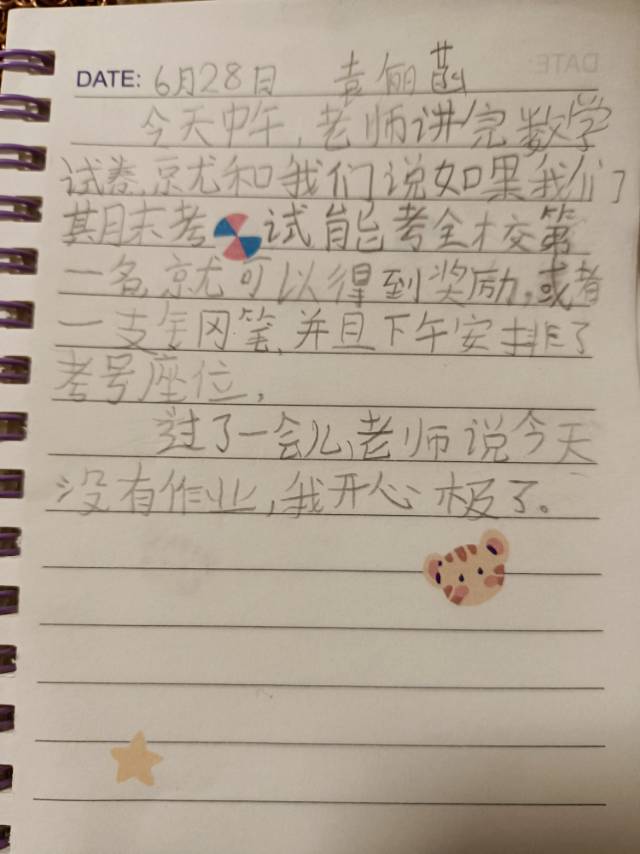 DATE: 6月28日 袁俪菡
今天中午,老师讲完数学
试卷,就和我们说如果我们
期末考试能考全校第
一名就可以得到奖励,或者
一支钢笔,并且下午安排了
考号座位,
过了一会儿,老师说今天
没有作业,我开心极了。